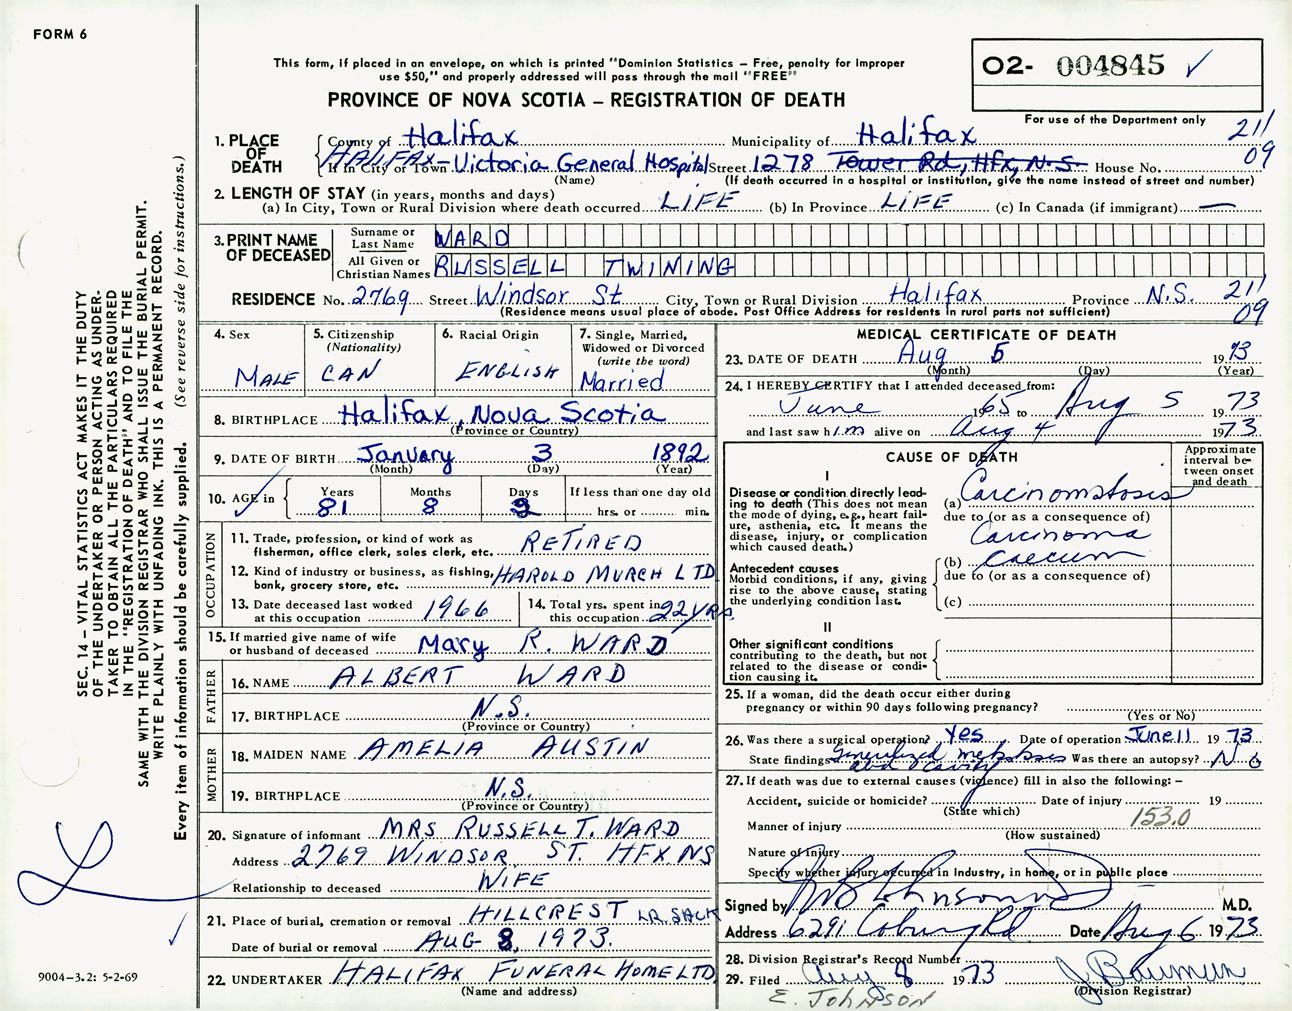 FORM 6
This form, if placed in an envelope, on which is printed "Dominion Statistics – Free, penalty for improper
use $50," and properly addressed will pass through the mail "FREE"
PROVINCE OF NOVA SCOTIA – REGISTRATION OF DEATH
02- 004845 ✓
For use of the Department only
211
09
1. PLACE OF DEATH
County of Halifax Municipality of Halifax
If in City or Town HALIFAX – Victoria General Hospital Street 1278 Tower Rd, Hfx, N.S. House No.
(Name) (If death occurred in a hospital or institution, give the name instead of street and number)
2. LENGTH OF STAY (in years, months and days)
(a) In City, Town or Rural Division where death occurred LIFE (b) In Province LIFE (c) In Canada (if immigrant) —
3. PRINT NAME OF DECEASED
Surname or Last Name WARD
All Given or Christian Names RUSSELL TWINING
RESIDENCE No. 2769 Street Windsor St City, Town or Rural Division Halifax Province N.S. 211
09
(Residence means usual place of abode. Post Office Address for residents in rural parts not sufficient)
4. Sex MALE
5. Citizenship (Nationality) CAN
6. Racial Origin ENGLISH
7. Single, Married, Widowed or Divorced (write the word) Married
8. BIRTHPLACE Halifax, Nova Scotia
(Province or Country)
9. DATE OF BIRTH January 3 1892
(Month) (Day) (Year)
10. AGE in Years 81 Months 8 Days 2 If less than one day old hrs. or min.
OCCUPATION
11. Trade, profession, or kind of work as fisherman, office clerk, sales clerk, etc. RETIRED
12. Kind of industry or business, as fishing, bank, grocery store, etc. HAROLD MURCH LTD
13. Date deceased last worked at this occupation 1966
14. Total yrs. spent in this occupation 22 YRS.
15. If married give name of wife or husband of deceased Mary R. WARD
FATHER
16. NAME ALBERT WARD
17. BIRTHPLACE N.S.
(Province or Country)
MOTHER
18. MAIDEN NAME AMELIA AUSTIN
19. BIRTHPLACE N.S.
(Province or Country)
20. Signature of informant MRS RUSSELL T. WARD
Address 2769 WINDSOR ST. HFX NS
Relationship to deceased WIFE
21. Place of burial, cremation or removal HILLCREST LR. SACK
Date of burial or removal AUG 8, 1973.
22. UNDERTAKER HALIFAX FUNERAL HOME LTD
(Name and address)
MEDICAL CERTIFICATE OF DEATH
23. DATE OF DEATH Aug 5 1973
(Month) (Day) (Year)
24. I HEREBY CERTIFY that I attended deceased from:
June 1965 to Aug 5 1973
and last saw him alive on Aug 4 1973
CAUSE OF DEATH
Approximate interval between onset and death
I
Disease or condition directly leading to death (This does not mean the mode of dying, e.g., heart failure, asthenia, etc. It means the disease, injury, or complication which caused death.)
(a) Carcinomatosis
due to (or as a consequence of)
Carcinoma
(b) caecum
due to (or as a consequence of)
(c)
Antecedent causes
Morbid conditions, if any, giving rise to the above cause, stating the underlying condition last.
II
Other significant conditions
contributing to the death, but not related to the disease or condition causing it.
25. If a woman, did the death occur either during
pregnancy or within 90 days following pregnancy?
(Yes or No)
26. Was there a surgical operation? Yes Date of operation June 11 1973
State findings Generalized metastases abd cavity Was there an autopsy? No
27. If death was due to external causes (violence) fill in also the following: –
Accident, suicide or homicide? Date of injury 19
(State which)
153.0
Manner of injury
(How sustained)
Nature of injury
Specify whether injury occurred in industry, in home, or in public place —
Signed by Johnson M.D.
Address 6291 Coburg Rd Date Aug 6 1973
28. Division Registrar's Record Number
29. Filed Aug 8 1973 J Bauman
(Division Registrar)
E. JOHNSON
SEC. 14 – VITAL STATISTICS ACT MAKES IT THE DUTY
OF THE UNDERTAKER OR PERSON ACTING AS UNDER-
TAKER TO OBTAIN ALL THE PARTICULARS REQUIRED
IN THE "REGISTRATION OF DEATH" AND TO FILE THE
SAME WITH THE DIVISION REGISTRAR WHO SHALL ISSUE THE BURIAL PERMIT.
WRITE PLAINLY WITH UNFADING INK. THIS IS A PERMANENT RECORD.
Every item of information should be carefully supplied. (See reverse side for instructions.)
9004–3.2: 5-2-69